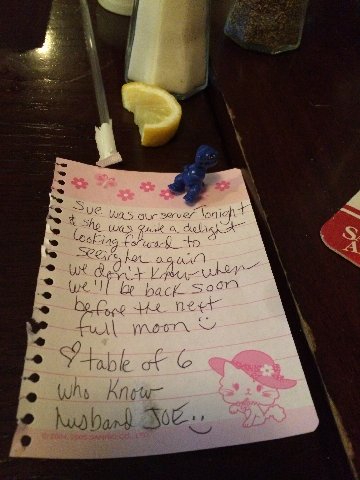 Sue was our server Tonight
& she was quite a delight
looking forward to
seeing her again
we don't know when
we'll be back soon
before the next
full moon
table of 6
who know
husband JOE
SANRIO CO., LTD.
SA
A